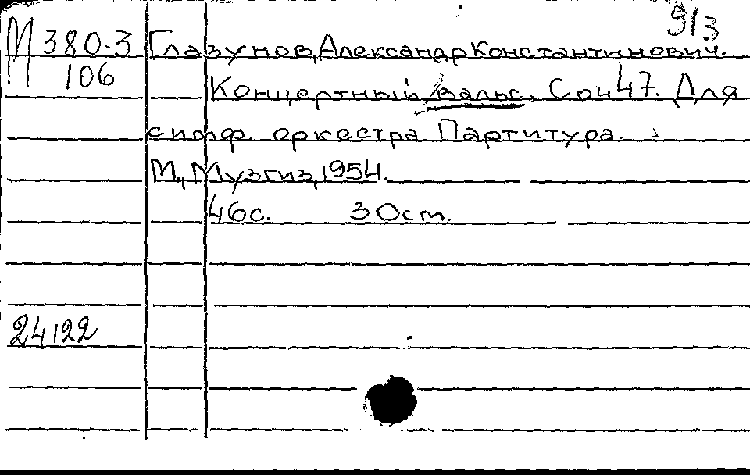 9/3
М 380-3 Глазунов, Александр Константинович.
106 Концертный вальс. Соч 47. Для
симф. оркестра Партитура.
М., Музгиз, 1954.
46с. 30см.
24122